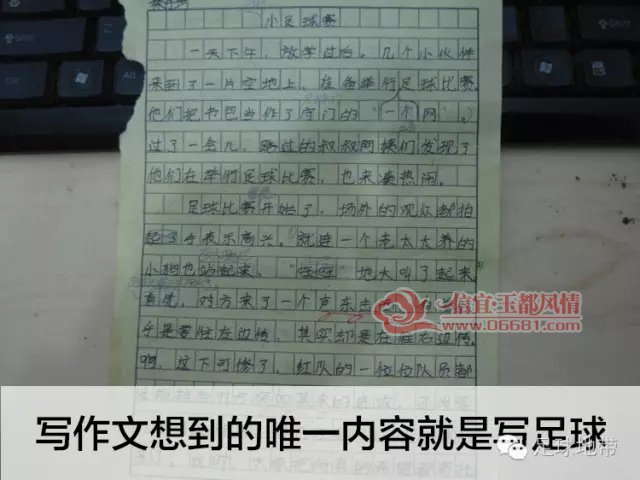 小足球赛
一天下午，放学过后，几个小伙伴
来到了一片空地上，准备举行足球比赛
他们把书包当作了守门的“一个网”。
过了一会儿，路过的叔叔阿姨们发现了
他们在举行足球比赛，也来凑热闹。
足球比赛开始了，场外的观众都拍
起了手表示高兴，就连一个老太太养的
小狗也站起来，“汪汪”地大叫了起来
首先，对方来了一个声东击
乎是要往左边传，其实却是在往右边传
啊，这下可惨了，红队的一位位队员都
信宜·玉都风情
www.06681.com
写作文想到的唯一内容就是写足球
足球地带